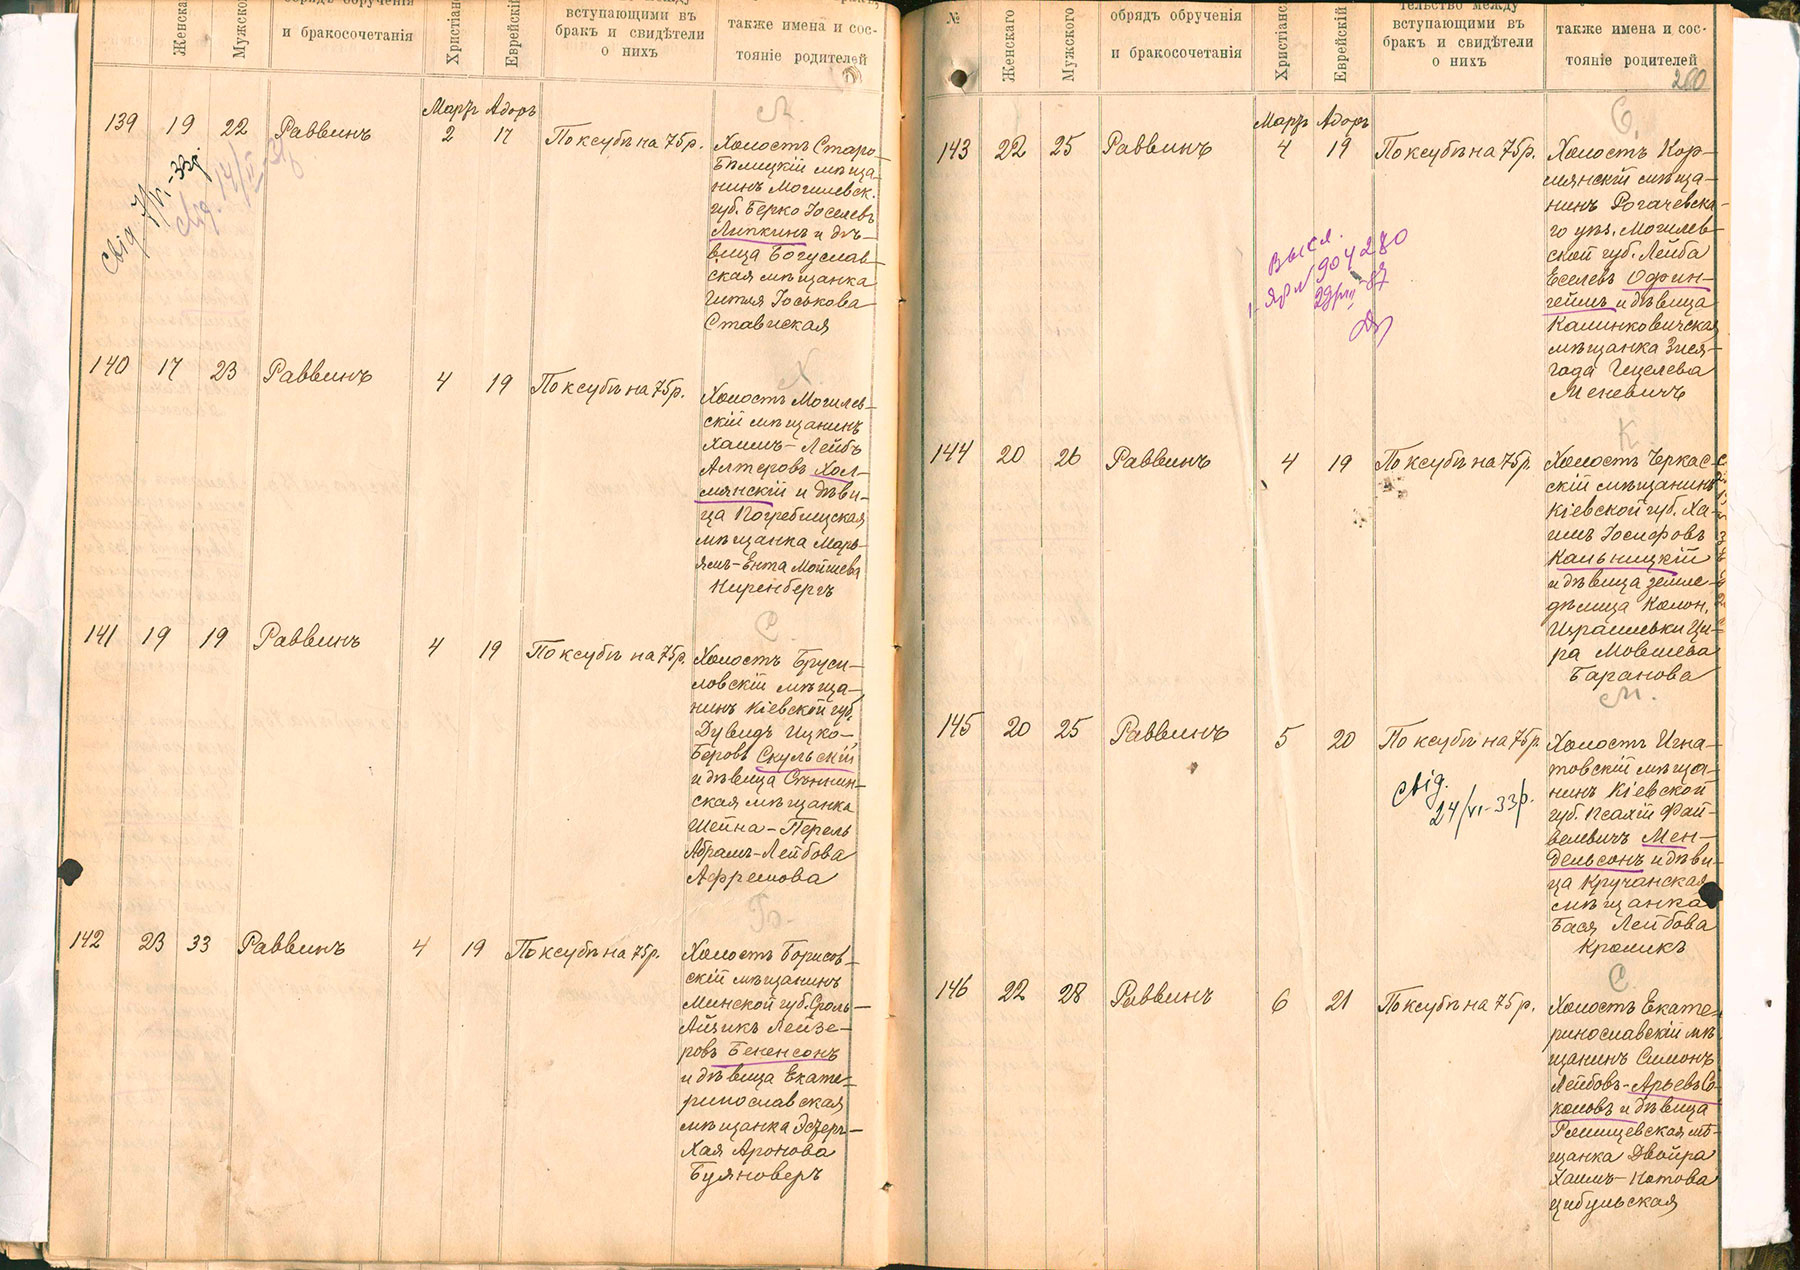 Женска
Мужско
обрядъ обрученія
и бракосочетанія
Христіанс
Еврейскій
вступающими въ
бракъ и свидѣтели
о нихъ
также имена и сос-
тояніе родителей
Мартъ Адоръ
139 19 22 Раввинъ 2 17 По ксубѣ на 75 р.
Л.
Холостъ Старо-
Бѣлицкій мѣща-
нинъ Могилевск.
губ. Берко Іоселевъ
Липкинъ и дѣ-
вица Богуслав-
ская мѣщанка
Гитля Іоськова
Ставиская
свід 7/VI-33р.
свід. 14/II
140 17 23 Раввинъ 4 19 По ксубѣ на 75 р.
Х
Холостъ Могилев-
скій мѣщанинъ
Хаимъ-Лейбъ
Алтеровъ Хол-
мянскій и дѣви-
ца Погребищская
мѣщанка Марь-
ямъ-Ента Мойшева
Ниренбергъ
141 19 19 Раввинъ 4 19 По ксубѣ на 75 р.
С.
Холостъ Бруси-
ловскій мѣща-
нинъ Кіевской губ.
Дувидъ Ицко-
Беровъ Скульскій
и дѣвица Сѣннин-
ская мѣщанка
Шейна-Перель
Абрамъ-Лейбова
Афремова
142 23 33 Раввинъ 4 19 По ксубѣ на 75 р.
Б.
Холостъ Борисов-
скій мѣщанинъ
Минской губ. Сроль-
Айзикъ Лейзе-
ровъ Бененсонъ
и дѣвица Екате-
ринославская
мѣщанка Эстеръ-
Хая Аронова
Буяноверъ
№
Женскаго
Мужского
обрядъ обрученія
и бракосочетанія
Христіанс
Еврейскій
тельство между
вступающими въ
бракъ и свидѣтели
о нихъ
также имена и сос-
тояніе родителей
280
Мартъ Адоръ
143 22 25 Раввинъ 4 19 По ксубѣ на 75 р.
О.
Холостъ Кор-
мянскій мѣща-
нинъ Рогачевска-
го уѣз. Могилев-
ской губ. Лейба
Еселевъ Офин-
гейшъ и дѣвица
Калинковичская
мѣщанка Зися-
Года Гецелева
Меневичъ
Высл.
1-ЯР № 904280
144 20 26 Раввинъ 4 19 По ксубѣ на 75 р.
К.
Холостъ Черкас-
скій мѣщанинъ
Кіевской губ. Ха-
имъ Іосифовъ
Кальницкій
и дѣвица земле-
дѣлица Колон.
Израилевки Ци-
ра Мовшева
Баранова
145 20 25 Раввинъ 5 20 По ксубѣ на 75 р.
М.
Холостъ Игна-
товскій мѣща-
нинъ Кіевской
губ. Псахій Фай-
велевичъ Мен-
дельсонъ и дѣви-
ца Кручанская
мѣщанка
Бася Лейбова
Кроликъ
свід.
24/VI-33р.
146 22 28 Раввинъ 6 21 По ксубѣ на 75 р.
С.
Холостъ Екате-
ринославскій мѣ-
щанинъ Симонъ
Лейбовъ-Арьевъ Со-
коловъ и дѣвица
Рящевская мѣ-
щанка Двойра
Хаимъ-Нотова
Цибульская